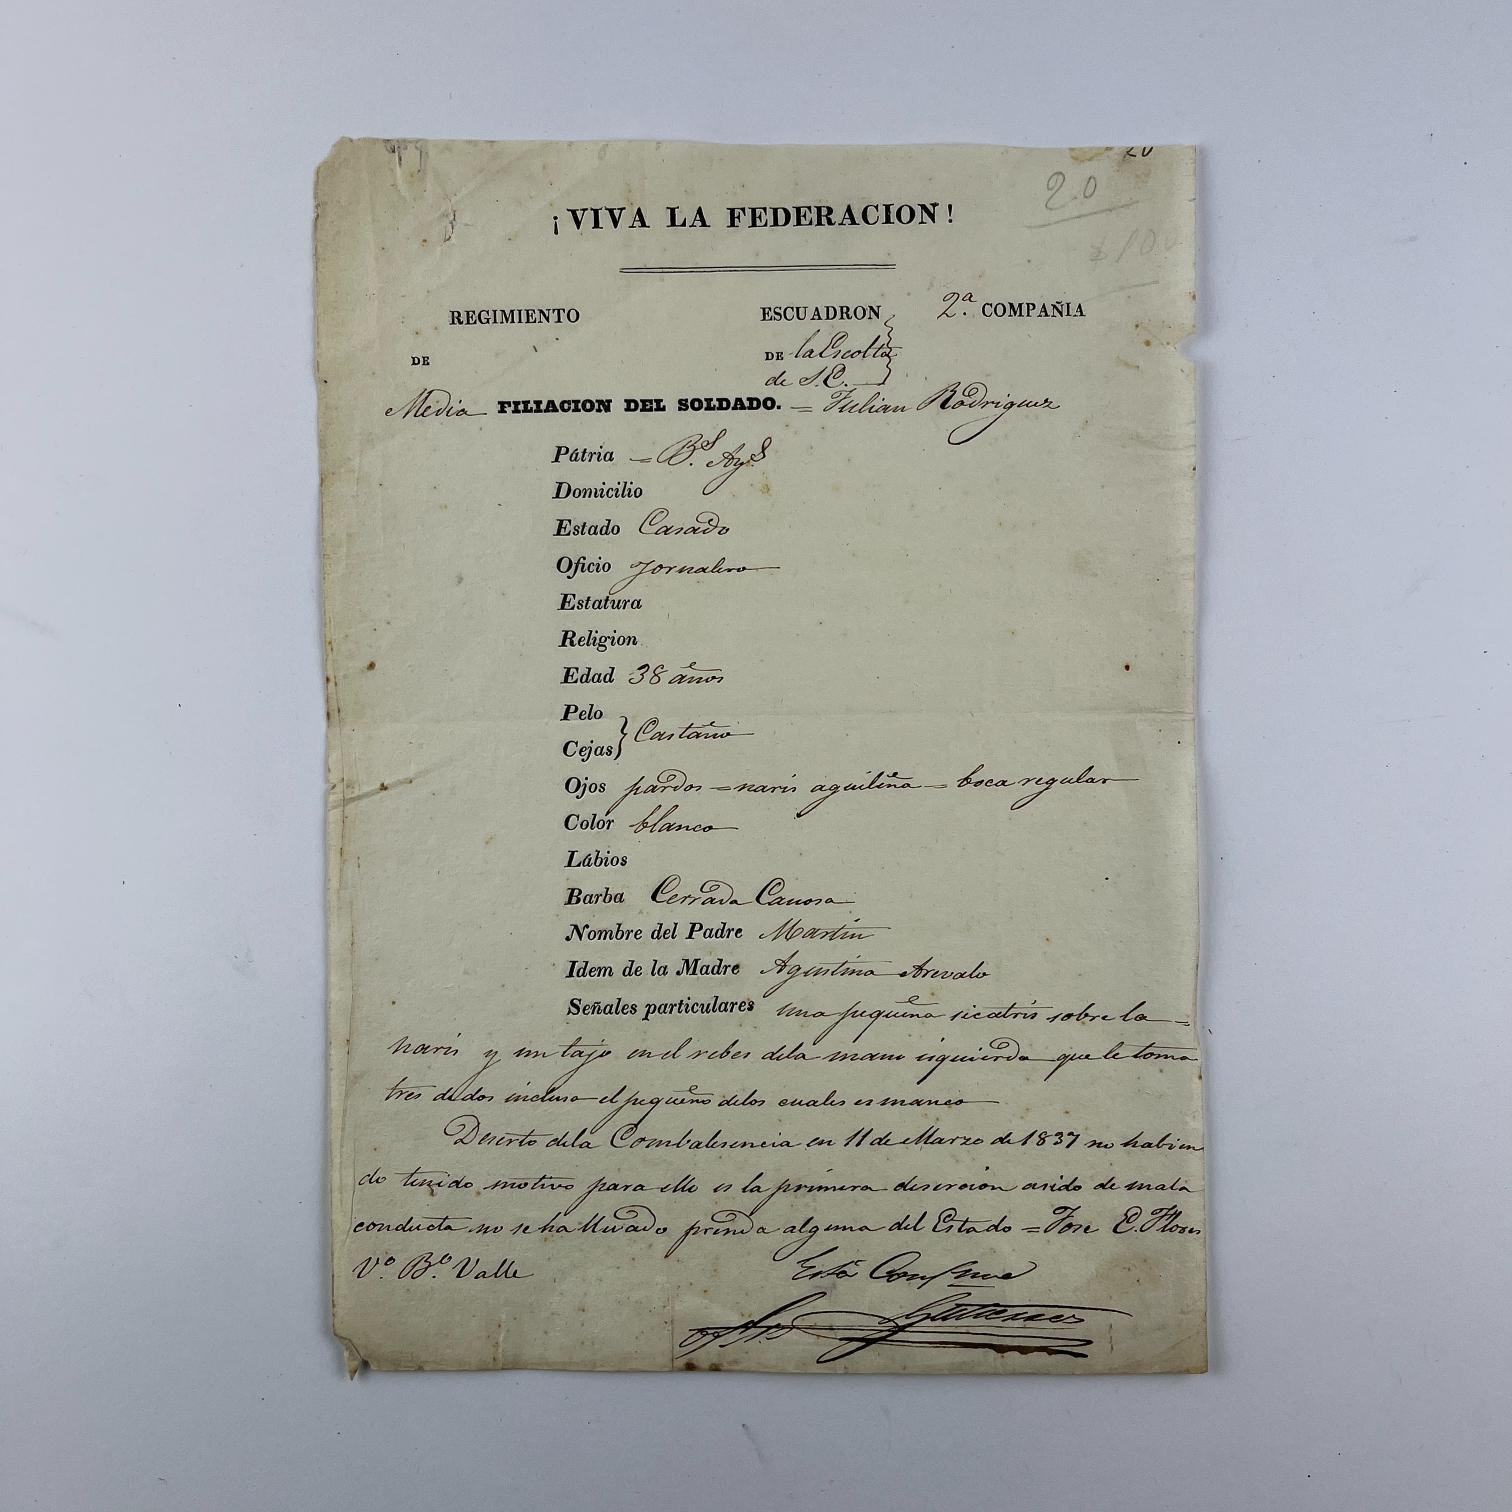 20
20
¡VIVA LA FEDERACION!
REGIMIENTO ESCUADRON 2.ª COMPAÑIA
DE DE la Escolta
de S.E.
Media FILIACION DEL SOLDADO. = Julian Rodriguez
Pátria = B.s Ay.s
Domicilio
Estado Casado
Oficio Jornalero
Estatura
Religion
Edad 38 años
Pelo
Cejas } Castaño
Ojos pardos = naris aguileña = boca regular
Color blanco
Lábios
Barba Cerrada Canosa
Nombre del Padre Martin
Idem de la Madre Agustina Arevalo
Señales particulares una pequeña sicatris sobre la =
naris y un tajo en el rebes dela mano isquierda que le toma
tres dedos incluso el pequeño delos cuales es manco
Desertó dela Combalesencia en 11 de Marzo de 1837 no habien
do tenido motivo para ello es la primera desercion asido de mala
conducta no se ha llevado prenda alguna del Estado = Jose E. Flores
V.º B.º Valle
Está Conforme
Gutierrez